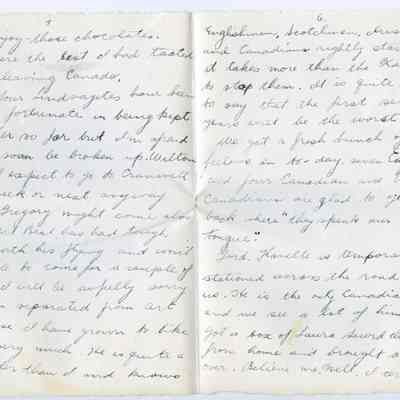 5
njoy those chocolates.
ere the best I had tasted
leaving Canada.
our Lindsayites have been
fortunate in being kept
er so far but I'm afraid
soon be broken up. Wilton
I expect to go to Cranwell
eek or next anyway
Gregory might come also
Art Beal has had tough
with his flying and won't
le to come for a couple of
I will be awfully sorry
separated from Art
se I have grown to like
very much. He is quite a
er than I and knows
6
Englishmen, Scotchmen, Aus
and Canadians rightly sta
it takes more than the Ka
to stop them. It is quite
to say that the first se
years will be the worst
We got a fresh bunch of
fellows in to-day. seven Can
and four Canadian and
Canadians are glad to get
back where "they speaks our
tongue".
Gord. Kanelle is tempora
stationed across the road
us. He is the only Canadian
and we see a lot of him
got a box of Laura Secord
from home and brought a
over. Believe me, Nell, I